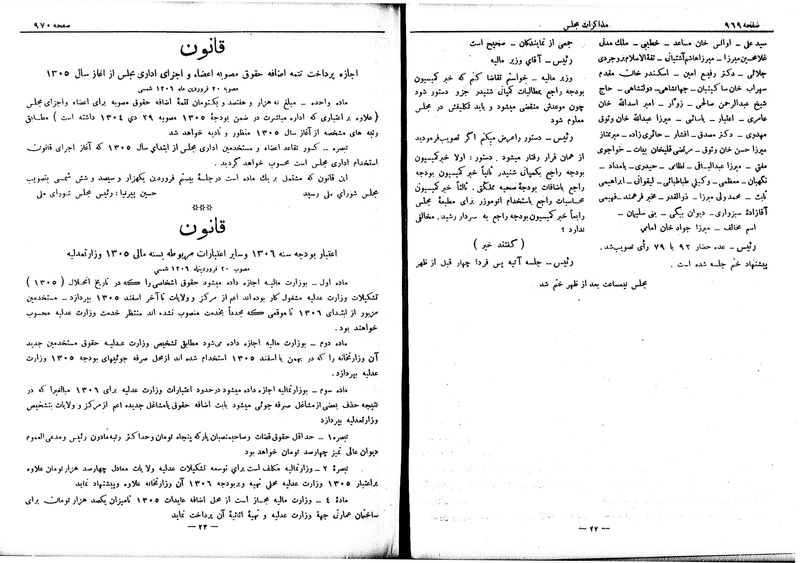 صفحه ۹۶۹
مذاکرات مجلس
سید علی ـ اوانس خان مساعد ـ خطیبی ـ ملک مدنی
غلامحسین میرزا ـ میرزا هاشم آشتیانی ـ ثقة‌الاسلام بروجردی
جلائی ـ دکتر رفیع امین ـ اسکندر خان مقدم
سهراب خان ساکینیان ـ جهانشاهی ـ دولتشاهی ـ حاج
شیخ عبدالرحمن صالحی ـ زوار ـ امیر اسدالله خان
عامری ـ اعتبار ـ یاسائی ـ میرزا عبدالله خان وثوق
مهدوی ـ دکتر مصدق ـ افشار ـ حائری زاده ـ میرممتاز
میرزا حسن خان وثوق ـ مرتضی قلیخان بیات ـ خواجوی
مفتی ـ میرزا عبدالباقی ـ نظامی ـ حیدری ـ بامداد ـ
نگهبان ـ معظمی ـ وکیلی طباطبائی ـ لیقوانی ـ ابراهیمی
ثابت ـ محمد ولی میرزا ـ ذوالقدر ـ مخبر فرهمند ـ فهیمی
آقازادهٔ سبزواری ـ دیوان بیگی ـ بنی سلیمان ـ
اسم مخالف ـ میرزا جواد خان امامی
رئیس ـ عده حضار ۹۲ با ۷۹ رأی تصویب شد.
پیشنهاد ختم جلسه شده است .
جمعی از نمایندگان ـ صحیح است
رئیس ـ آقای وزیر مالیه
وزیر مالیه ـ خواستم تقاضا کنم که خبر کمیسیون
بودجه راجع بمطالبات کمپانی شنیدر جزو دستور شود
چون موعدش منقضی میشود و باید تکلیفش در مجلس
معلوم شود
رئیس ـ دستور را عرض میکنم اگر تصویب فرمودید
از همان قرار رفتار میشود . دستور : اولا خبر کمیسیون
بودجه راجع بکمپانی شنیدر ثانیاً خبر کمیسیون بودجه
راجع باضافات بودجهٔ صحیه مملکتی . ثالثاً خبر کمیسیون
محاسبات راجع باستخدام اتوموزر برای مطبعهٔ مجلس
رابعاً خبر کمیسیون بودجه راجع به سردار رشید. مخالفی
ندارد ؟
( گفتند خیر )
رئیس ـ جلسه آتیه پس فردا چهار قبل از ظهر
مجلس نیمساعت بعد از ظهر ختم شد
ـ ۲۲ ـ
صفحه ۹۷۰
قانون
اجازه پرداخت تتمه اضافه حقوق مصوبه اعضاء و اجزای اداری مجلس از آغاز سال ۱۳۰۵
مصوبه ۲۰ فروردین ماه ۱۳۰۶ شمسی
ماده واحده ـ مبلغ نه هزار و هفتصد و یکتومان تتمهٔ اضافه حقوق مصوبه برای اعضاء واجزای مجلس
(علاوه بر اعتباری که اداره مباشرت در ضمن بودجهٔ ۱۳۰۵ مصوبه ۲۹ دی ۱۳۰۴ داشته است ) مطابق
رتبه های مشخصه از آغاز سال ۱۳۰۵ منظور و تأدیه خواهد شد
تبصره ـ کسور تقاعد اعضاء و مستخدمین اداری مجلس از ابتدای سال ۱۳۰۵ که آغاز اجرای قانون
استخدام اداری مجلس است محسوب خواهد گردید .
این قانون که مشتمل بر یک ماده است در جلسهٔ بیستم فروردین یکهزار و سیصد و شش شمسی بتصویب
مجلس شورای ملی رسید
حسین پیرنیا : رئیس مجلس شورای ملی
***
قانون
اعتبار بودجه سنه ۱۳۰۶ وسایر اعتبارات مربوطه بسنه مالی ۱۳۰۵ وزارتعدلیه
مصوب ۲۰ فروردینماه ۱۳۰۶ شمسی
ماده اول ـ بوزارت مالیه اجازه داده میشود حقوق اشخاصی را که در تاریخ انحلال ( ۱۳۰۵ )
تشکیلات وزارت عدلیه مشغول کار بوده‌اند اعم از مرکز و ولایات تا آخر اسفند ۱۳۰۵ بپردازد ـ مستخدمین
مزبور از ابتدای ۱۳۰۶ تا موقعی که مجدداً بخدمت منصوب نشده اند منتظر خدمت وزارت عدلیه محسوب
خواهند بود .
ماده دوم ـ بوزارت مالیه اجازه داده می‌شود مطابق تشخیص وزارت عدلیه حقوق مستخدمین جدید
آن وزارتخانه را که در بهمن یا اسفند ۱۳۰۵ استخدام شده اند از محل صرفه جوئیهای بودجه ۱۳۰۵ وزارت
عدلیه بپردازد .
ماده سوم ـ بوزارتمالیه اجازه داده میشود در حدود اعتبارات وزارت عدلیه برای ۱۳۰۶ مبالغیرا که در
نتیجه حذف بعضی از مشاغل صرفه جوئی میشود بابت اضافه حقوق یا مشاغل جدیده اعم از مرکز و ولایات بتشخیص
وزارتعدلیه بپردازد
تبصره ۱ ـ حداقل حقوق قضات و صاحبمنصبان پارکه پنجاه تومان وحداکثر رتبه مادون رئیس ومدعی‌العموم
دیوان عالی تمیز چهارصد تومان خواهد بود
تبصرهٔ ۲ ـ وزارتمالیه مکلف است برای توسعه تشکیلات عدلیه ولایات معادل چهارصد هزارتومان علاوه
براعتبار ۱۳۰۵ وزارت عدلیه محلی تهیه وبربودجه ۱۳۰۶ آن وزارتخانه علاوه وپیشنهاد نماید
مادهٔ ۴ ـ وزارت مالیه مجاز است از محل اضافه عایدات ۱۳۰۵ تامیزان یکصد هزار تومان برای
ساختمان عمارتی جهة وزارت عدلیه و تهیهٔ اثاثیهٔ آن پرداخت نماید
ـ ۲۳ ـ